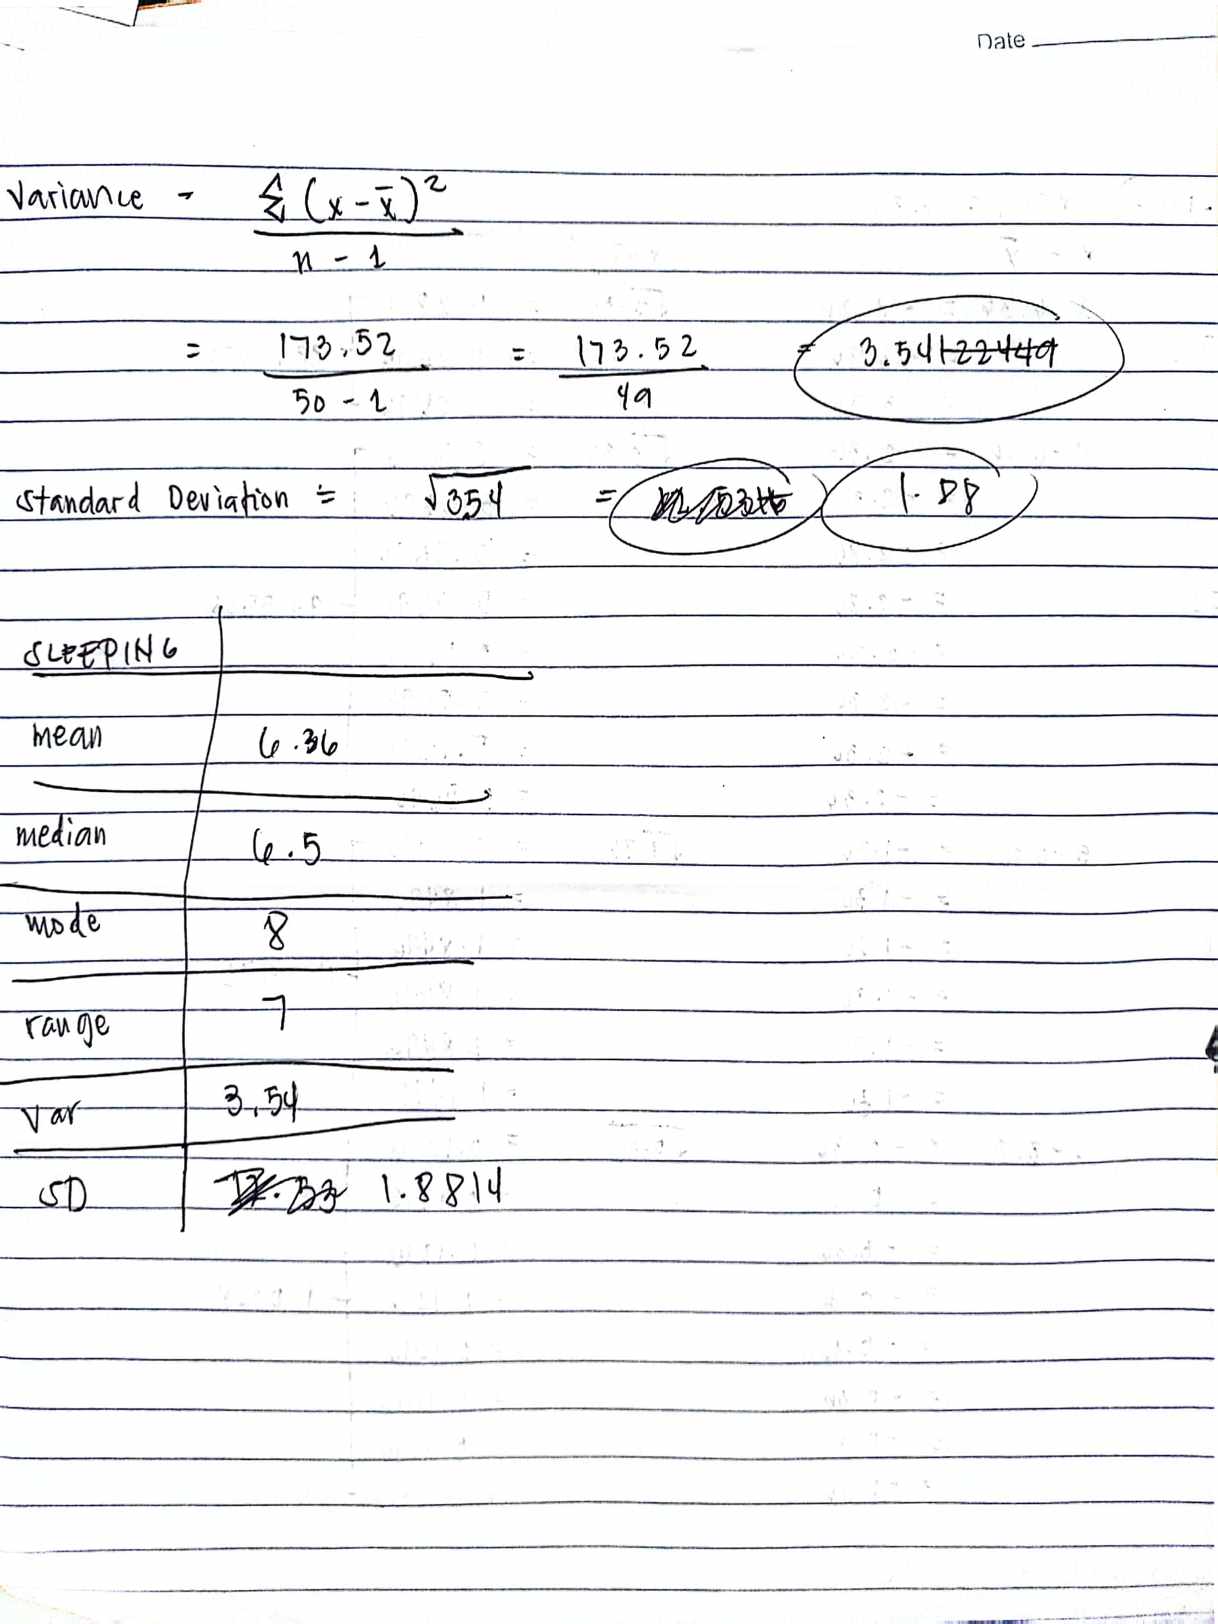 Date
Variance = Σ (x - x̄)²
n - 1
= 173.52 = 173.52 = 3.54122449
50 - 1 49
Standard Deviation = √354 = 1.88
SLEEPING
mean 6.36
median 6.5
mode 8
range 7
Var 3.54
SD 1.8814